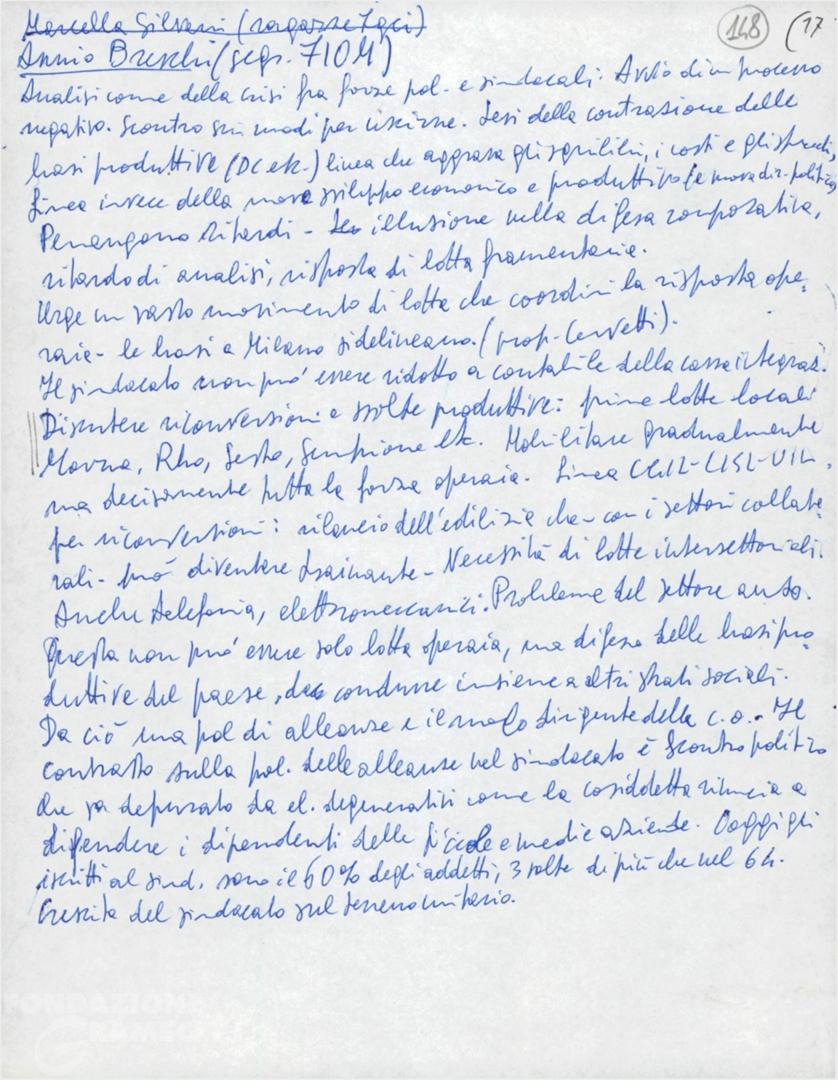 148 (17
Marcella Silvani (ragazze Fgci)
Annio Breschi (segr. FIOM)
Analisi comune della crisi fra forze pol. e sindacali. Avvio di un processo
negativo. Scontro sui modi per uscirne. Tesi della contrazione delle
basi produttive (DC etc.) linea che aggrava gli squilibri, i costi e gli sprechi,
linea invece della nuova sviluppo economico e produttivo (e nuova dir. politica)
Permangono ritardi - illusione nella difesa corporativa,
ritardo di analisi, risposta di lotta frammentaria.
Urge un vasto movimento di lotta che coordini la risposta ope,
raia - le basi a Milano si delineano. (prop. Cervetti).
Il sindacato non può essere ridotto a contabile della cassa integraz.
Discutere riconversioni e svolte produttive: prime lotte locali
Monza, Rho, Sesto, Sempione etc. Mobilitare gradualmente
ma decisamente tutta la forza operaia. Linea CGIL-CISL-UIL,
per riconversioni: rilancio dell'edilizia che - con i settori collate,
rali - può diventare trainante - Necessità di lotte intersettoriali.
Anche telefonia, elettromeccanici. Problema del settore auto.
Questa non può essere solo lotta operaia, ma difesa delle basi pro,
duttive del paese, da condurre insieme a altri strati sociali.
Da ciò una pol di alleanze e il ruolo dirigente della c.o. - Il
contrasto sulla pol. delle alleanze nel sindacato è scontro politico
che va depurato da el. degenerativi come la cosiddetta rinuncia a
difendere i dipendenti delle piccole e medie aziende. Oggi gli
iscritti al sind. sono il 60% degli addetti, 3 volte di più che nel 64.
Crescita del sindacato sul terreno unitario.
FONDAZIONE
GRAMSCI